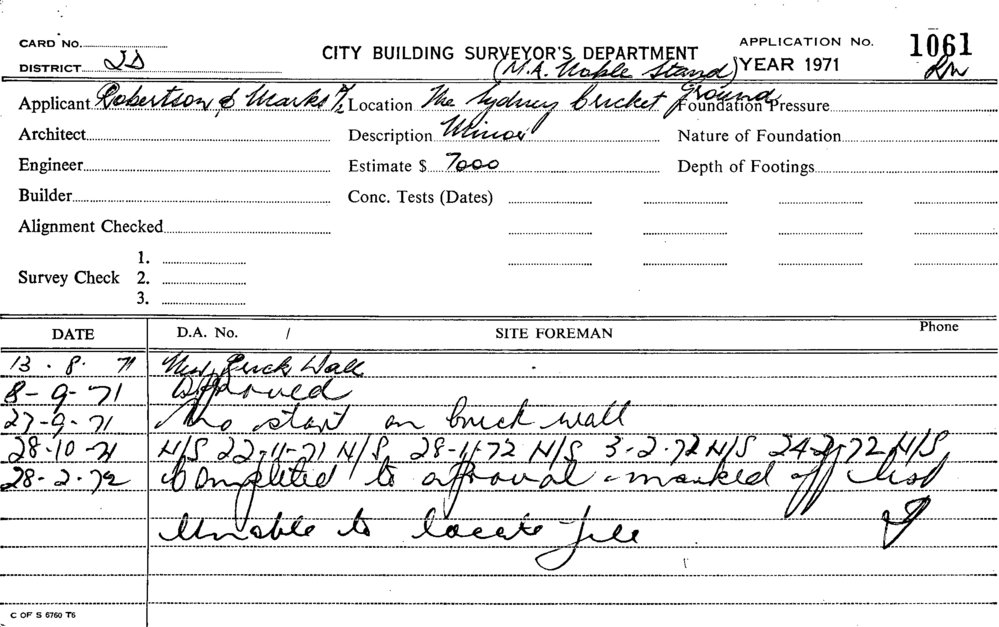 CARD No.
DISTRICT
CITY BUILDING SURVEYOR'S DEPARTMENT
APPLICATION No. 1061
(M.A. Noble Stand) YEAR 1971
Applicant Robertson & Marks P/L Location The Sydney Cricket Ground Foundation Pressure
Architect Description Minor Nature of Foundation
Engineer Estimate $ 7000 Depth of Footings
Builder Conc. Tests (Dates)
Alignment Checked
Survey Check 1.
2.
3.
DATE D.A. No. / SITE FOREMAN Phone
13.8.71 New Brick Wall
8-9-71 Approved
27-9-71 No start on brick wall
28-10-71 N/S 22-11-71 N/S 28-11-72 N/S 3-2-72 N/S 24-2-72 N/S
28-2-72 Completed to approval - marked off list
Unable to locate file
C OF S 6760 T6